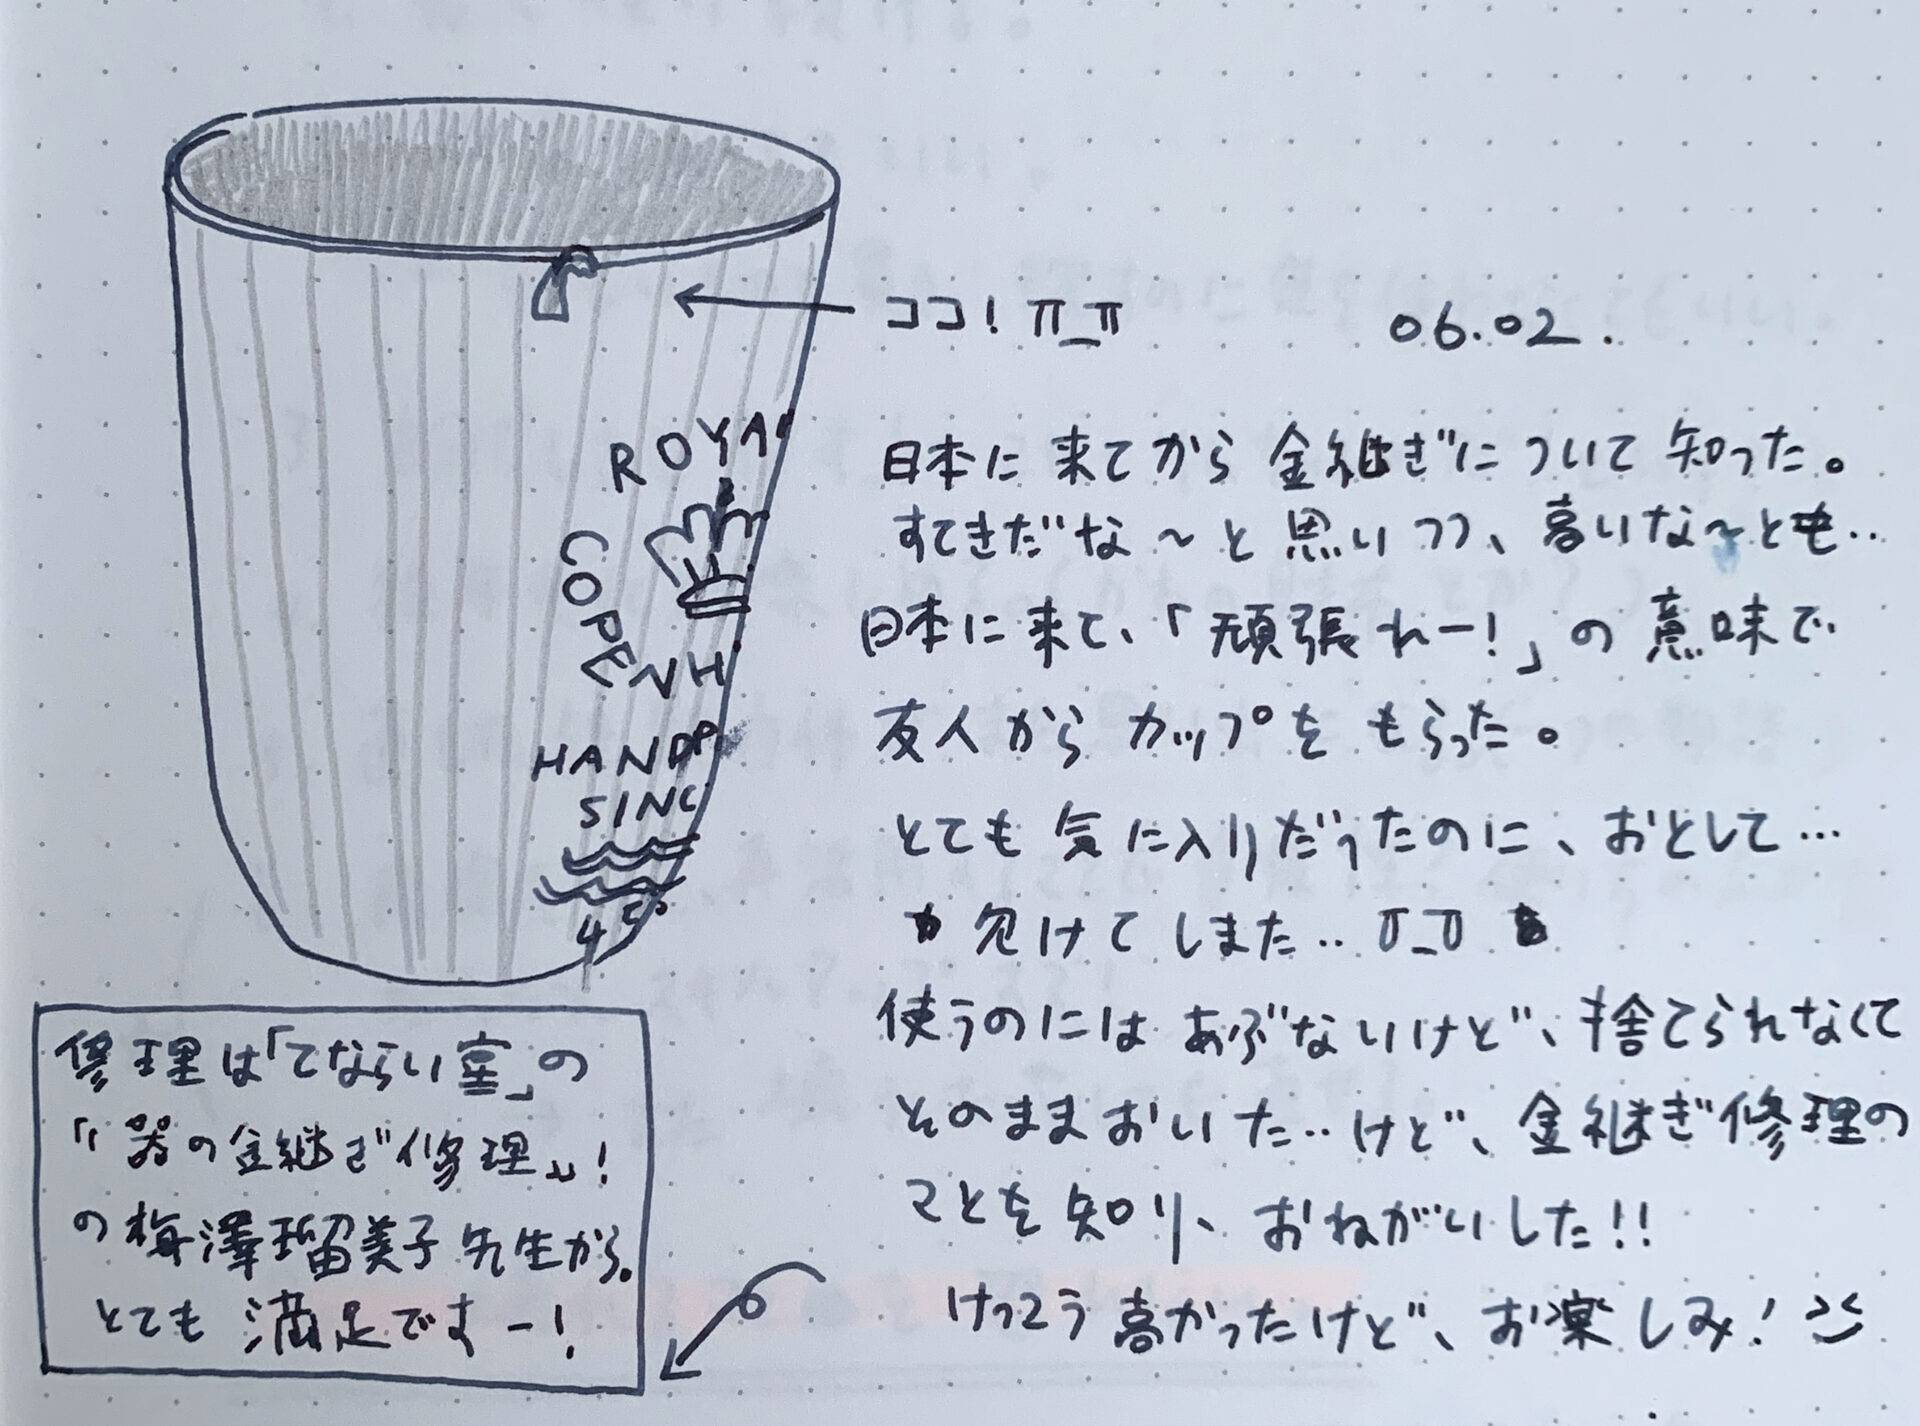 ココ! π_π
06.02.
ROYA
COPENH
HANDP
SINC
日本に来てから金継ぎについて知った。
すてきだな〜と思いつつ、高いな〜とも‥
日本に来て、「頑張れー!」の意味で
友人からカップをもらった。
とても気に入りだったのに、おとして…
欠けてしまた‥ π_π
使うのにはあぶないけど、捨てられなくて
そのままおいた‥けど、金継ぎ修理の
ことを知り、おねがいした!!
けっこう高かったけど、お楽しみ!
修理は「てならい堂」の
「器の金継ぎ修理」!
の梅澤瑠美子先生から。
とても満足ですー!